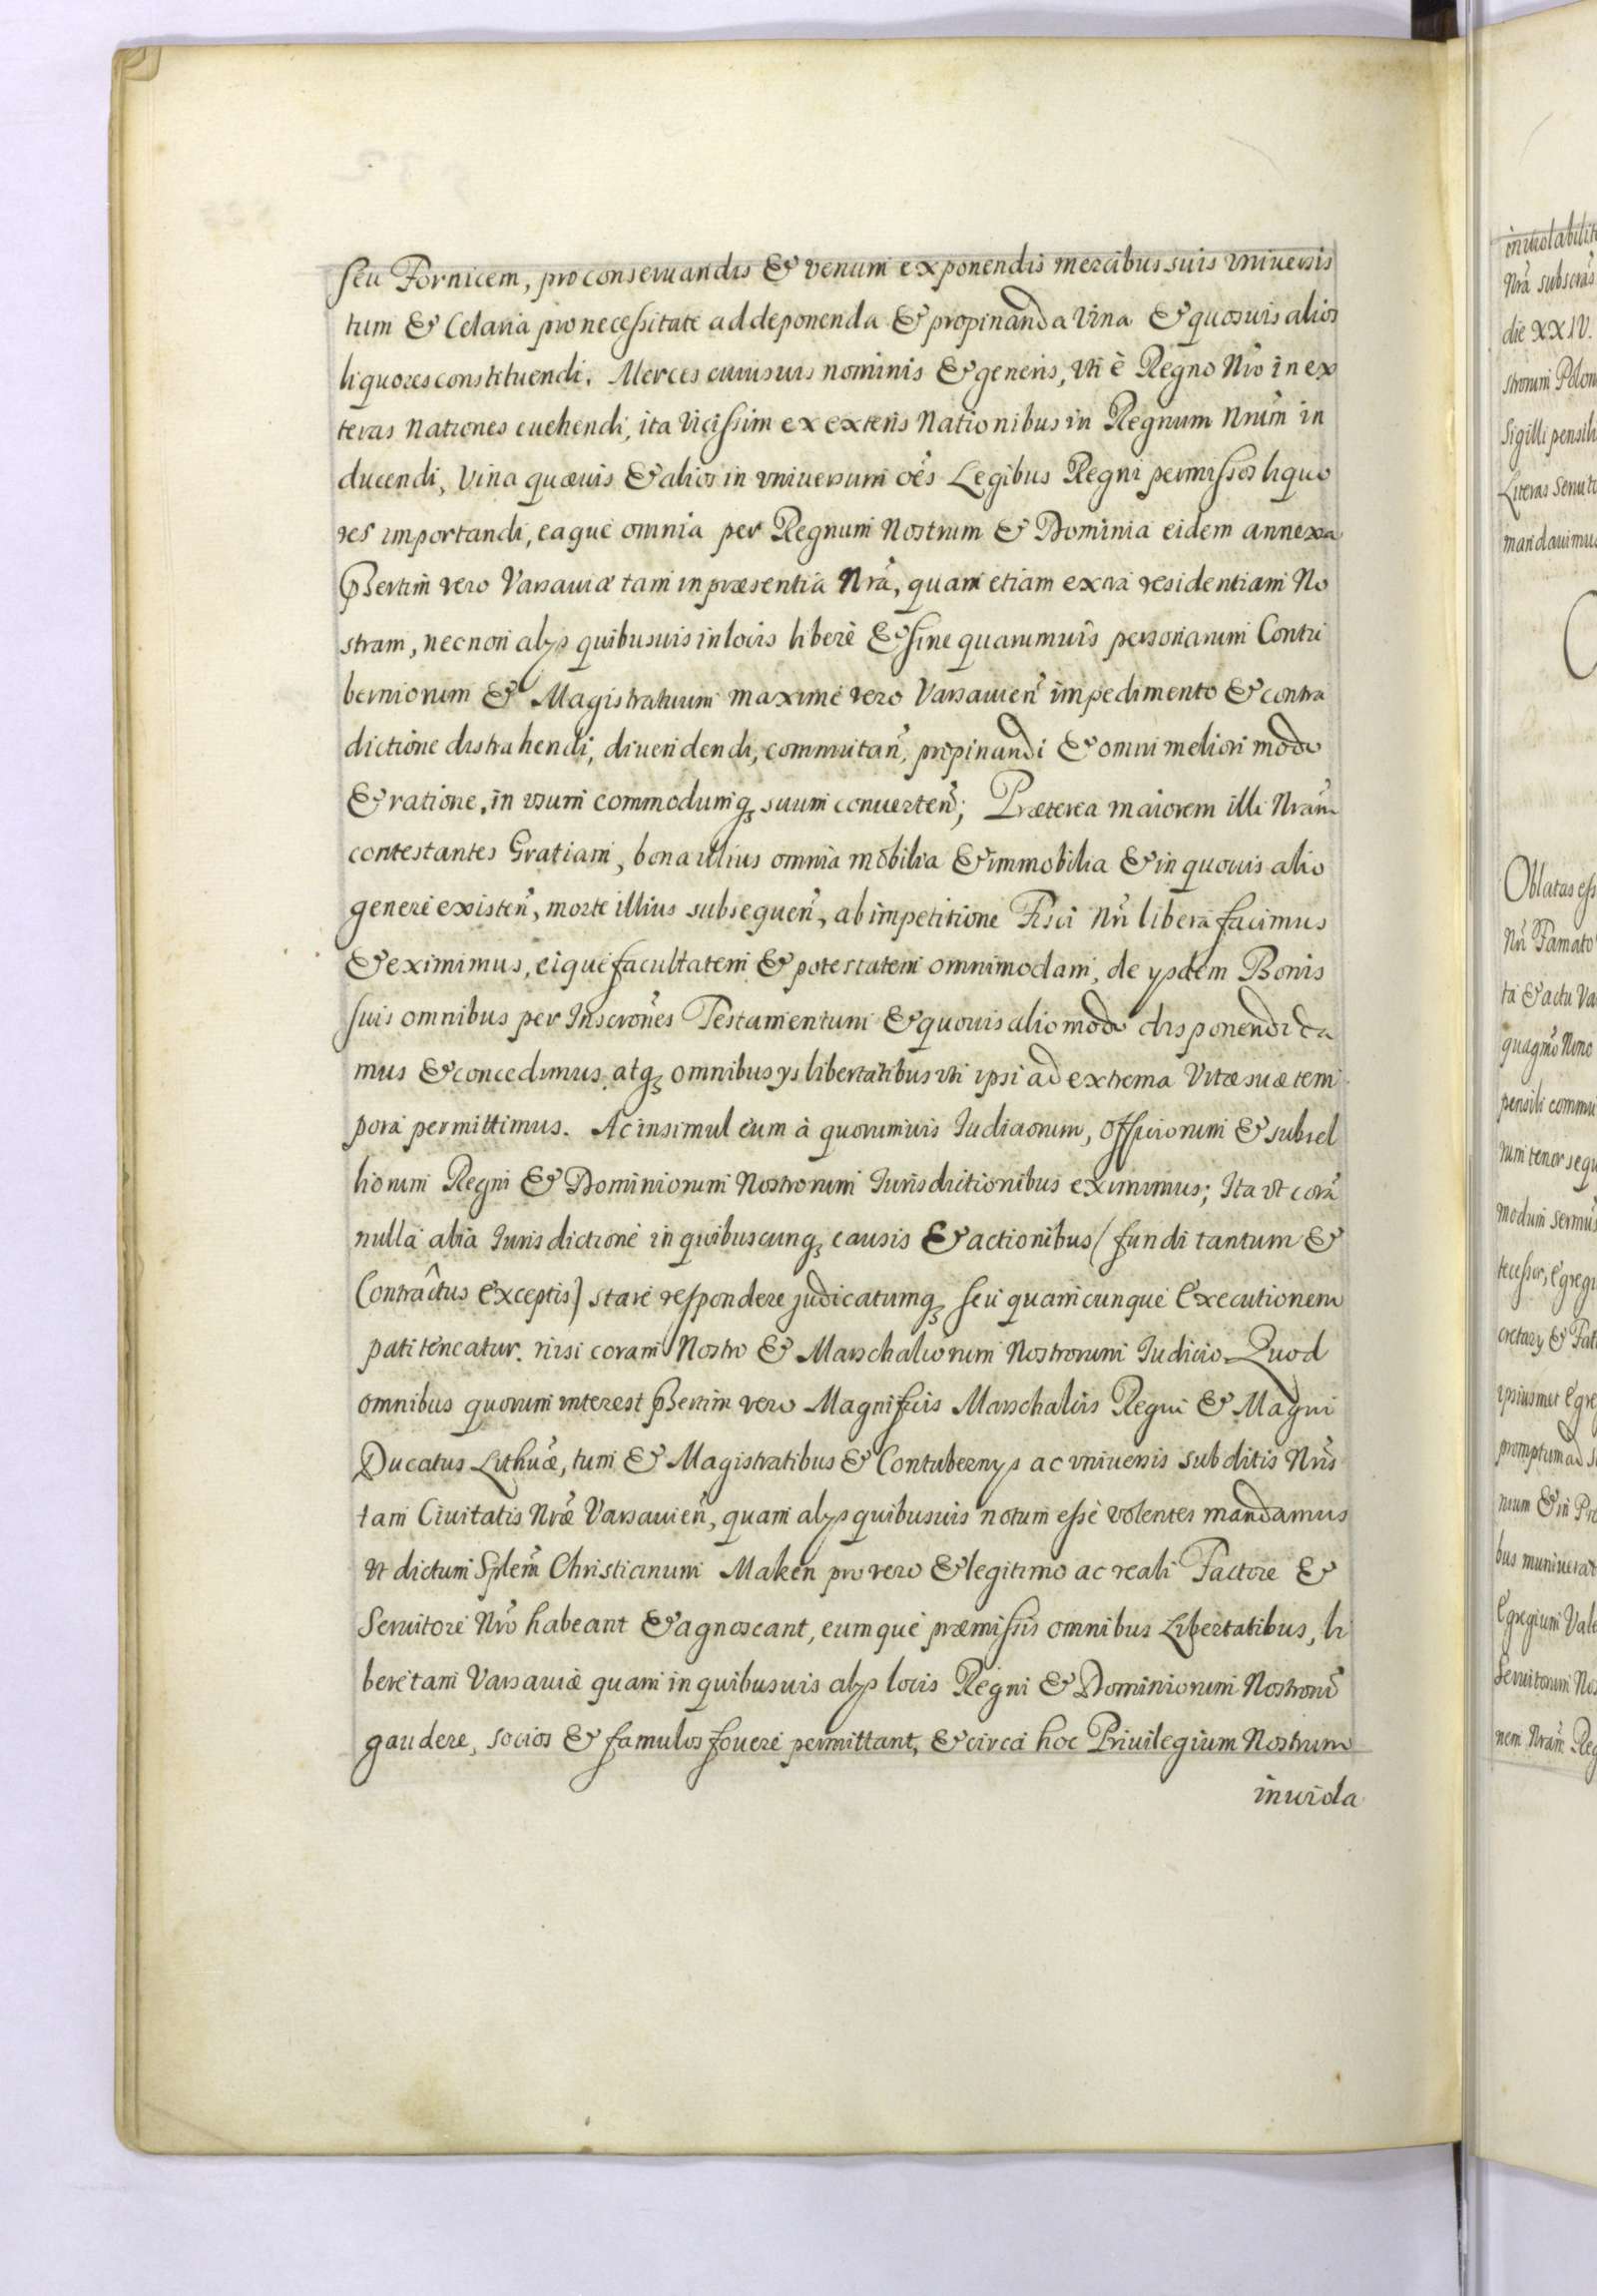 seu Fornicem, pro conseruandis & venum exponendis mercibus suis vniuersis
tum & Celaria pro necessitate ad deponenda & propinanda Vina & quosuis alios
liquores constituendi. Merces cuiusuis nominis & generis, vti è Regno Nrõ in ex
teras Nationes euehendi, ita vicissim ex exteris Nationibus in Regnum Nrũm in
ducendi, Vina quæuis & alios in vniuersum oẽs Legibus Regni permissos liquo
res importandi, eaque omnia per Regnum Nostrum & Dominia eidem annexa
Psertim vero Varsauiæ tam in præsentia Nrã, quam etiam extra residentiam No
stram, necnon alys quibusuis in locis liberè & sine quarumuis personarum Contu
bernionum & Magistratuum maxime vero Varsauieñ impedimento & contra
dictione distrahendi, diuendendi, commutañ, propinandi & omni meliori modo
& ratione, in vsum commodumq; suum conuerteñ; Præterea maiorem illi Nrãm
contestantes Gratiam, bona illius omnia mobilia & immobilia & in quouis alio
genere existeñ, morte illius subsequeñ, ab impetitione Fisci Nrĩ libera facimus
& eximimus, eique facultatem & potestatem omnimodam, de ysdem Bonis
suis omnibus per Inscrõnes Testamentum & quouis alio modo disponendi da
mus & concedimus, atq; omnibus ys libertatibus vti ipsi ad extrema Vitæ suæ tem
pora permittimus. Ac insimul eum à quorumuis Iudiciorum, Officiorum & subsel
liorum Regni & Dominiorum Nostrorum Iurisdictionibus eximimus; Ita vt corã
nulla alia Iurisdictione in quibuscunq; causis & actionibus (fundi tantum &
Contractus exceptis) stare respondere judicatumq; seu quamcunque Executionem
pati teneatur. nisi coram Nostro & Marschaliorum Nostrorum Iudicio. Quod
omnibus quorum interest Psertim vero Magnificis Marschalcis Regni & Magni
Ducatus Lithuæ, tum & Magistratibus & Contubernys ac vniuersis subditis Nrĩs
tam Ciuitatis Nræ Varsauieñ, quam alys quibusuis notum esse volentes mandamus
vt dictum Splem̃ Christianum Maken pro vero & legitimo ac reali Factore &
Seruitore Nrõ habeant & agnoscant, eumque præmissis omnibus Libertatibus, li
bere tam Varsauiæ quam in quibusuis alys locis Regni & Dominiorum Nostrorũ
gaudere, socios & famulos fouere permittant, & circa hoc Priuilegium Nostrum
inuiola
inuiolabilit
Nrã subscrãs
die XXIV.
strorum Polon
Sigilli pensili
Literas Seruit
mandauimus
Oblatas ess
Nrĩ Famato
ta & actu Va
pensili commu
rum tenor sequ
modum sermũs
tecessor, Egregi
cretary & Fat
ipsiusmet Egre
promptum ad s
nium & in Pro
bus muniuerat
Egregium Vale
Seruitorum Nos
nem Nrãm Reg